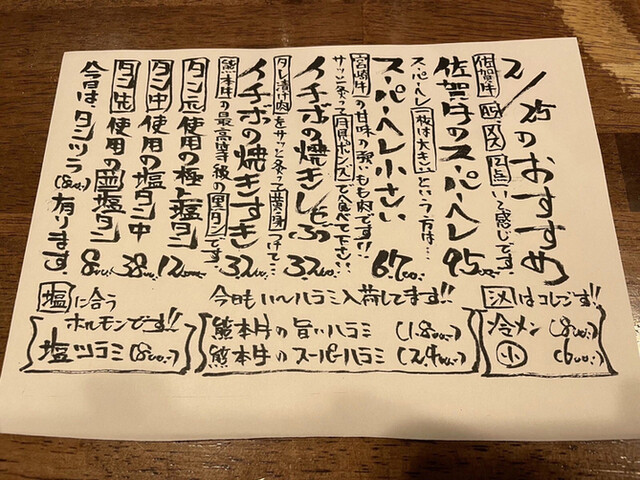 2/25のおすすめ
佐賀牛 A5 メス 12点 いい感じです!
佐賀牛のスーパーヘレ 9500-
スーパーヘレ 1枚は大きい という方は…
スーパーヘレ小さい 6700-
宮崎牛の甘味の強いもも肉です!!
サッと炙って自家ポンズで食べて下さい
イチボの焼きしゃぶ 3200-
タレ漬け肉をサッと炙って黄身つけて…
イチボの焼きすき 3200-
熊本牛の最高等級の黒タンです
タン元使用の極上塩タン 1200-
タン中使用の塩タン中 3800-
タン先使用の塩タン 800-
今日はタンツラ(800-)有ります
塩に合う
ホルモンです!!
塩ツラミ(800-)
今日もいーハラミ入荷してます!!
熊本牛の旨いハラミ (1.800-)
熊本牛のスーパーハラミ (2.400-)
〆はコレでございます!!
冷メン (800-)
小 (600-)